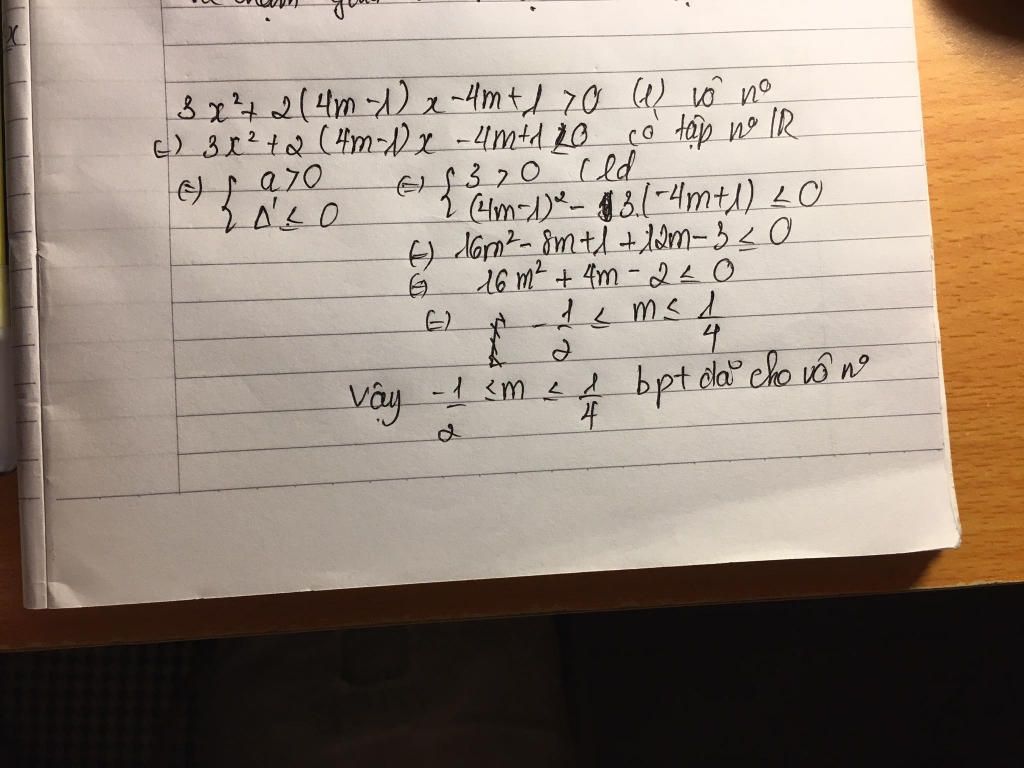 3x² + 2(4m-1)x - 4m + 1 > 0 (1) vô nº
(=) 3x² + 2(4m-1)x - 4m+1 ≤ 0 có tập nº IR
(=) { a > 0 (=) { 3 > 0 (lđ
Δ' ≤ 0 (4m-1)² - 3.(-4m+1) ≤ 0
(=) 16m² - 8m + 1 + 12m - 3 ≤ 0
(=) 16m² + 4m - 2 ≤ 0
(=) -1/2 ≤ m ≤ 1/4
Vậy -1/2 ≤ m ≤ 1/4 bpt đã cho vô nº